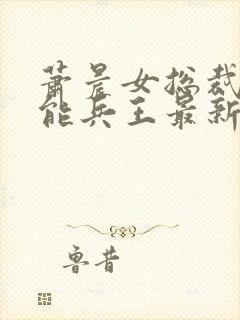 萧晨女总裁
能兵王最新
鲁昔